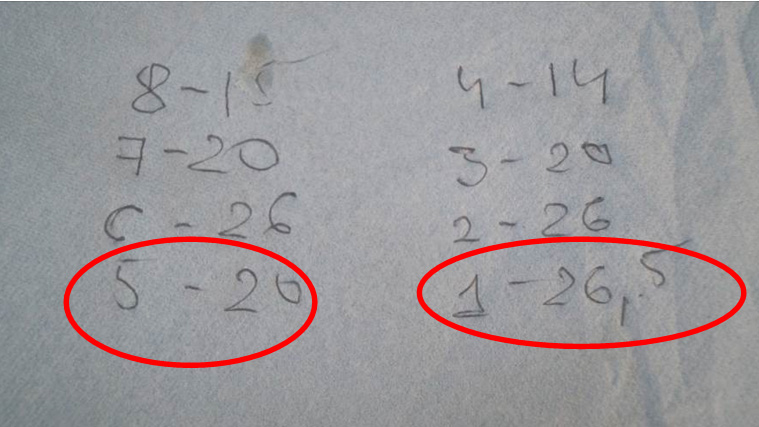 8-15
7-20
6-26
5-20
4-14
3-20
2-26
1-26,5